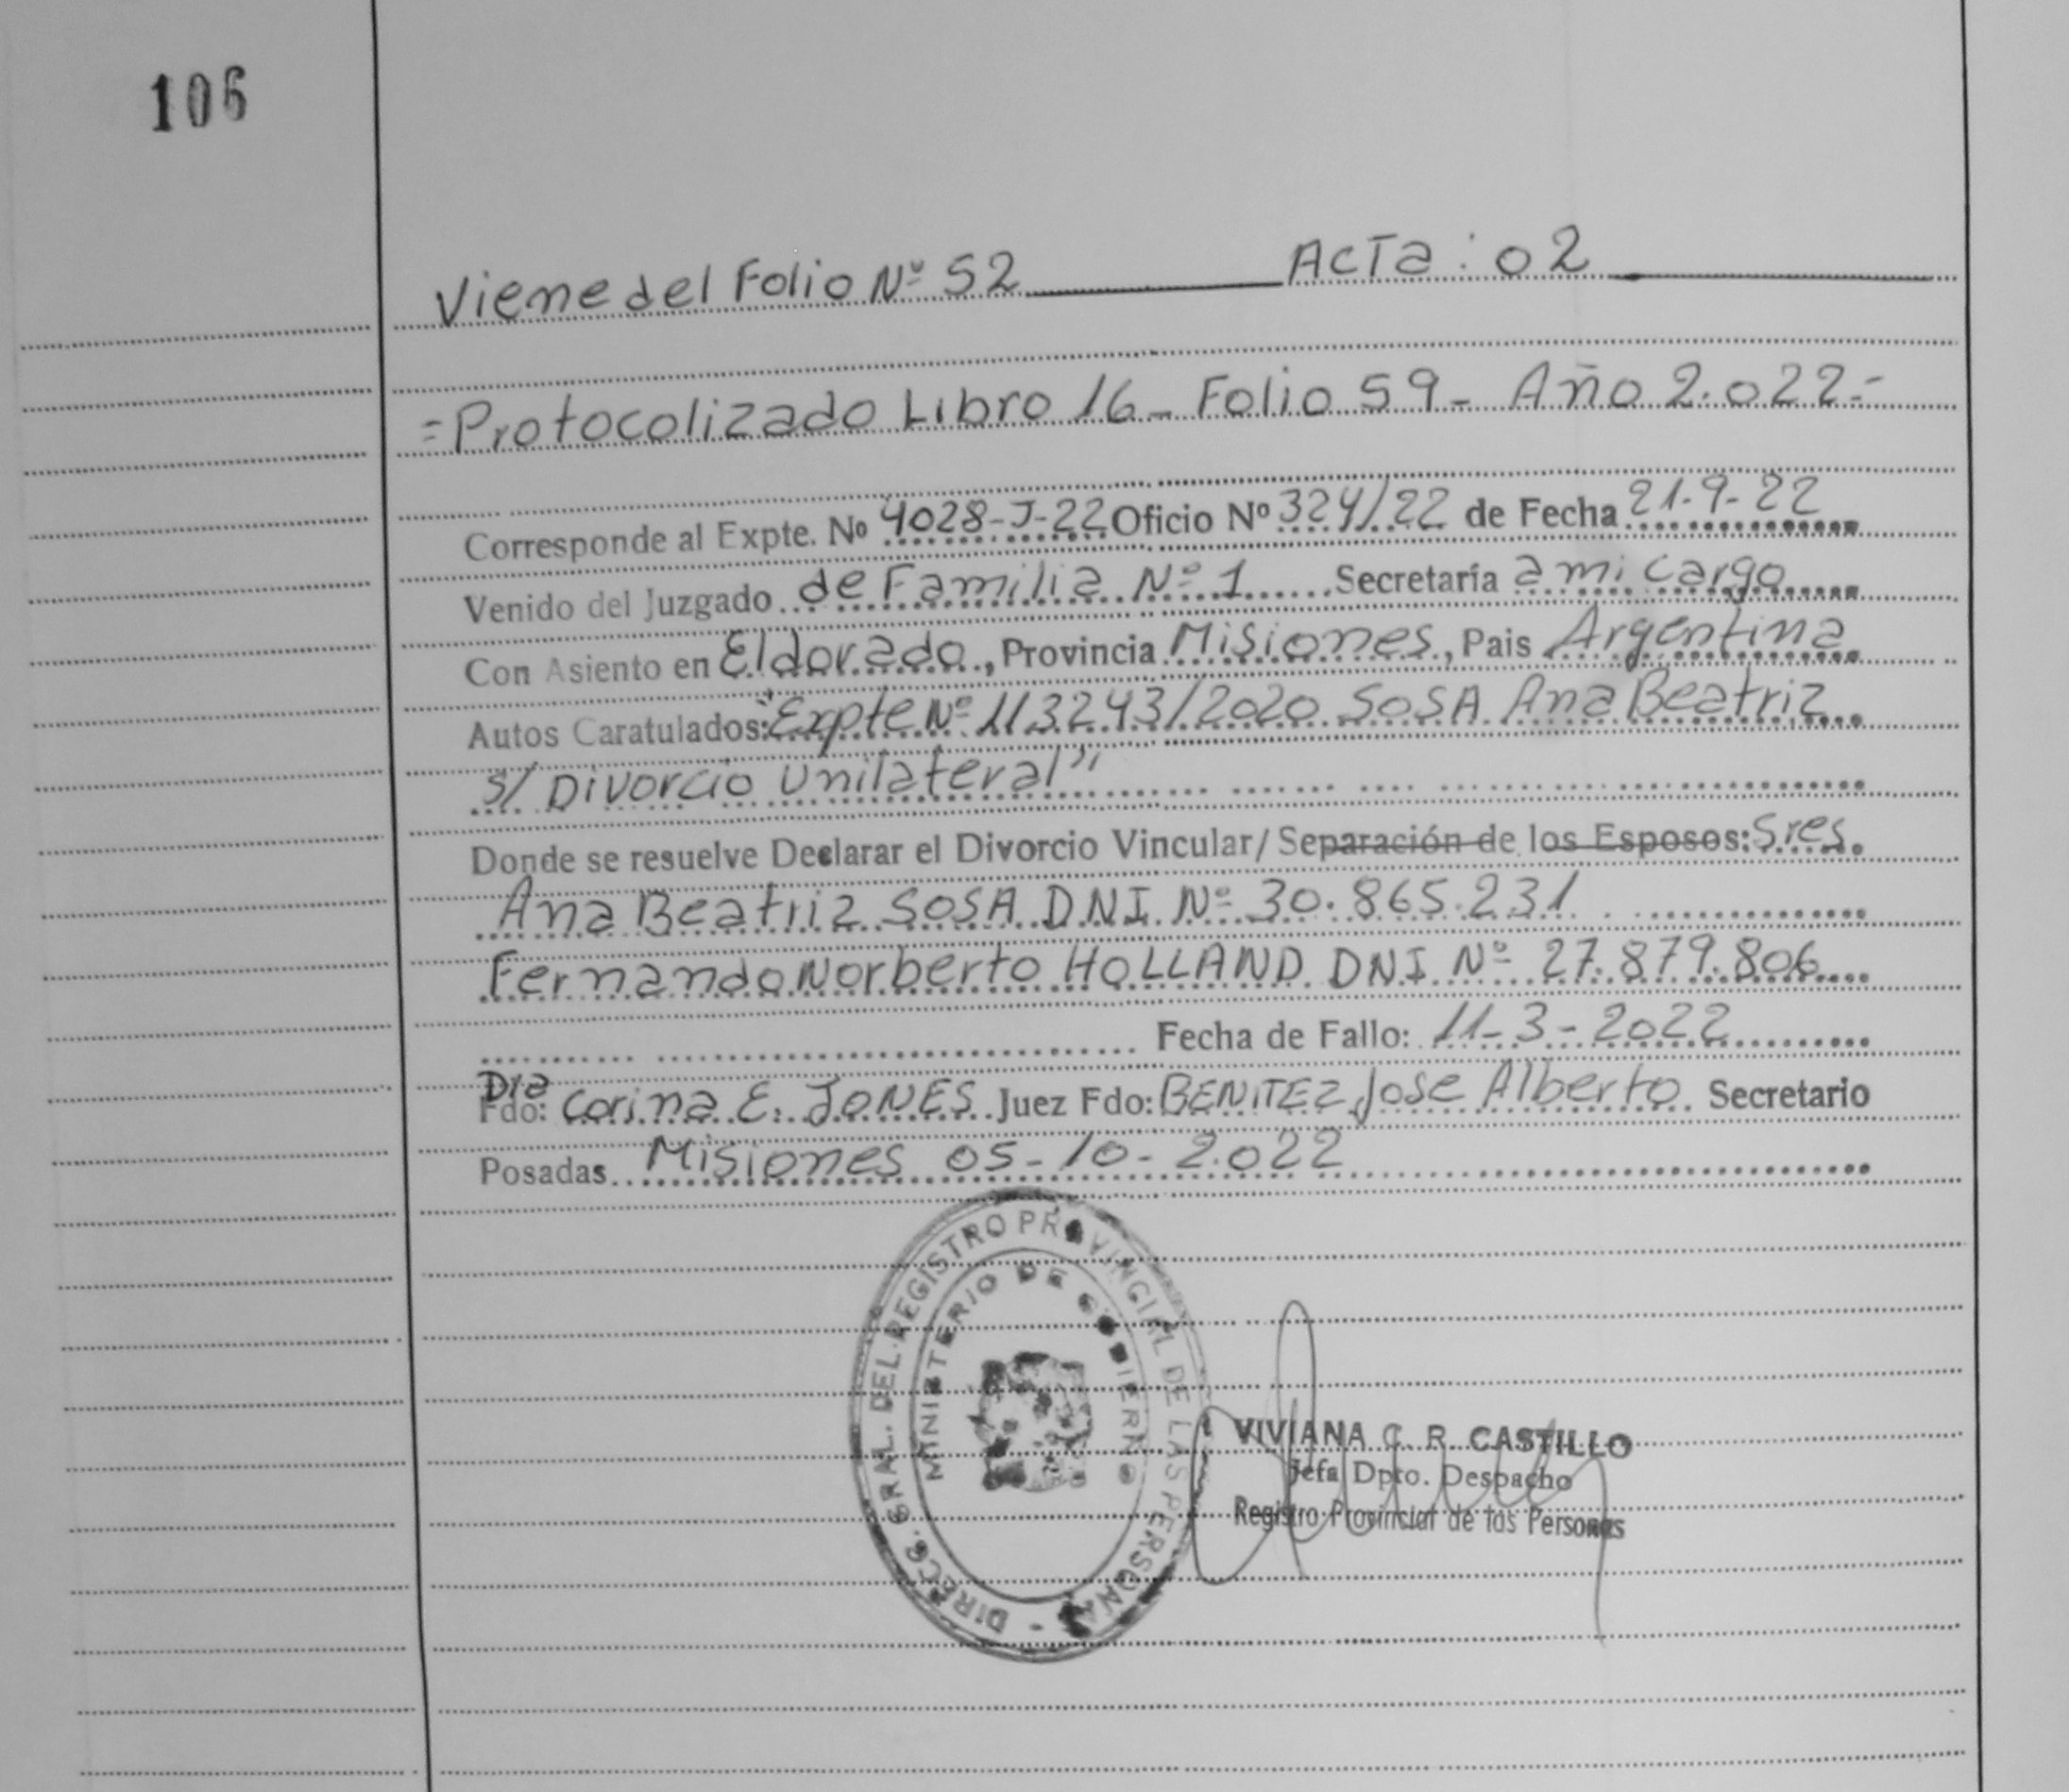 106
Viene del Folio Nº 52 Acta: 02
=Protocolizado Libro 16- Folio 59- Año 2.022-
Corresponde al Expte. Nº 4028-J-22 Oficio Nº 324/22 de Fecha 21-9-22
Venido del Juzgado de Familia Nº 1 Secretaría a mi cargo
Con Asiento en Eldorado, Provincia Misiones, Pais Argentina
Autos Caratulados: "Expte Nº 113243/2020 SOSA Ana Beatriz
S/ Divorcio Unilateral"
Donde se resuelve Declarar el Divorcio Vincular/ Separación de los Esposos: Sres.
Ana Beatriz SOSA DNI Nº 30.865.231
Fernando Norberto HOLLAND DNI Nº 27.879.806
Fecha de Fallo: 11-3-2022
Dra
Fdo: Corina E. JONES Juez Fdo: BENITEZ Jose Alberto Secretario
Posadas Misiones 05-10-2.022
DIRECC. GRAL. DEL REGISTRO PROVINCIAL DE LAS PERSONAS -
MINISTERIO DE GOBIERNO
VIVIANA C. R. CASTILLO
Jefa Dpto. Despacho
Registro Provincial de las Personas